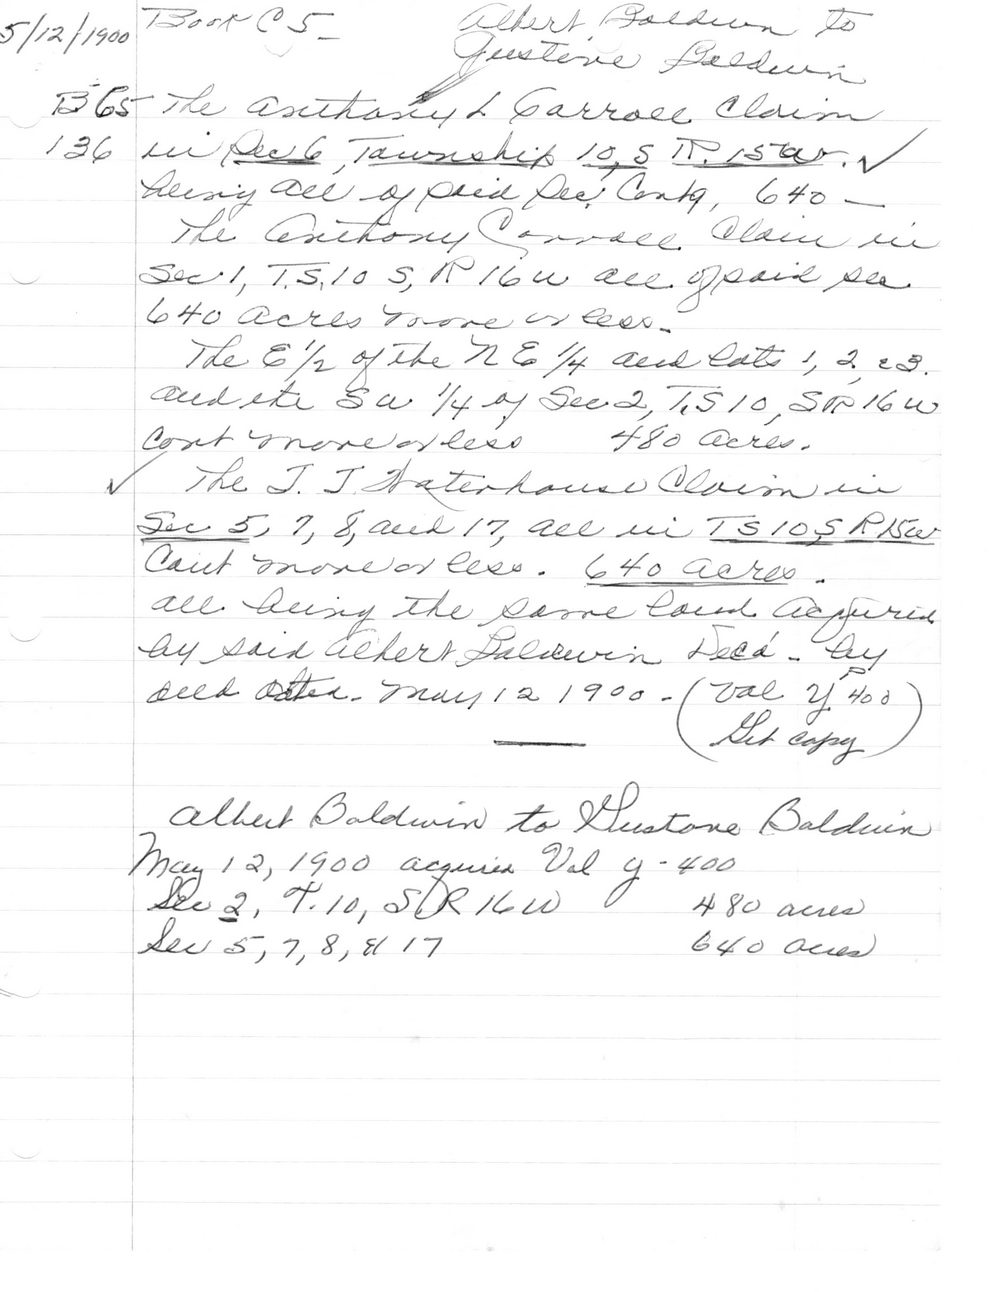 5/12/1900 Book C 5 - Albert Baldwin to
Gustove Baldwin
B 65 The Anthony L Carroll Claim
136 in Sec 6, Township 10, S R. 15 W. ✓
being all of said Sec, Contg, 640 —
The Anthony Carroll Claim in
Sec 1, T.S. 10 S, R 16 W all of said sec
640 acres more or less -
The E 1/2 of the N E 1/4 and lots 1, 2, & 3.
and the S W 1/4 of Sec 2, T,S 10, S R 16 W
cont more or less 480 acres.
✓ The J. J. Waterhouse Claim in
Sec 5, 7, 8, and 17, all in T S 10, S R 15 W
Cont more or less. 640 acres.
all being the same land acquired
by said Albert Baldwin Dec'd - by
deed dated - May 12 1900 - (Val Y p 400
Get copy)
Albert Baldwin to Gustove Baldwin
May 12, 1900 acquired Vol Y - 400
Sec 2, T. 10, S R 16 W 480 acres
Sec 5, 7, 8, & 17 640 acres